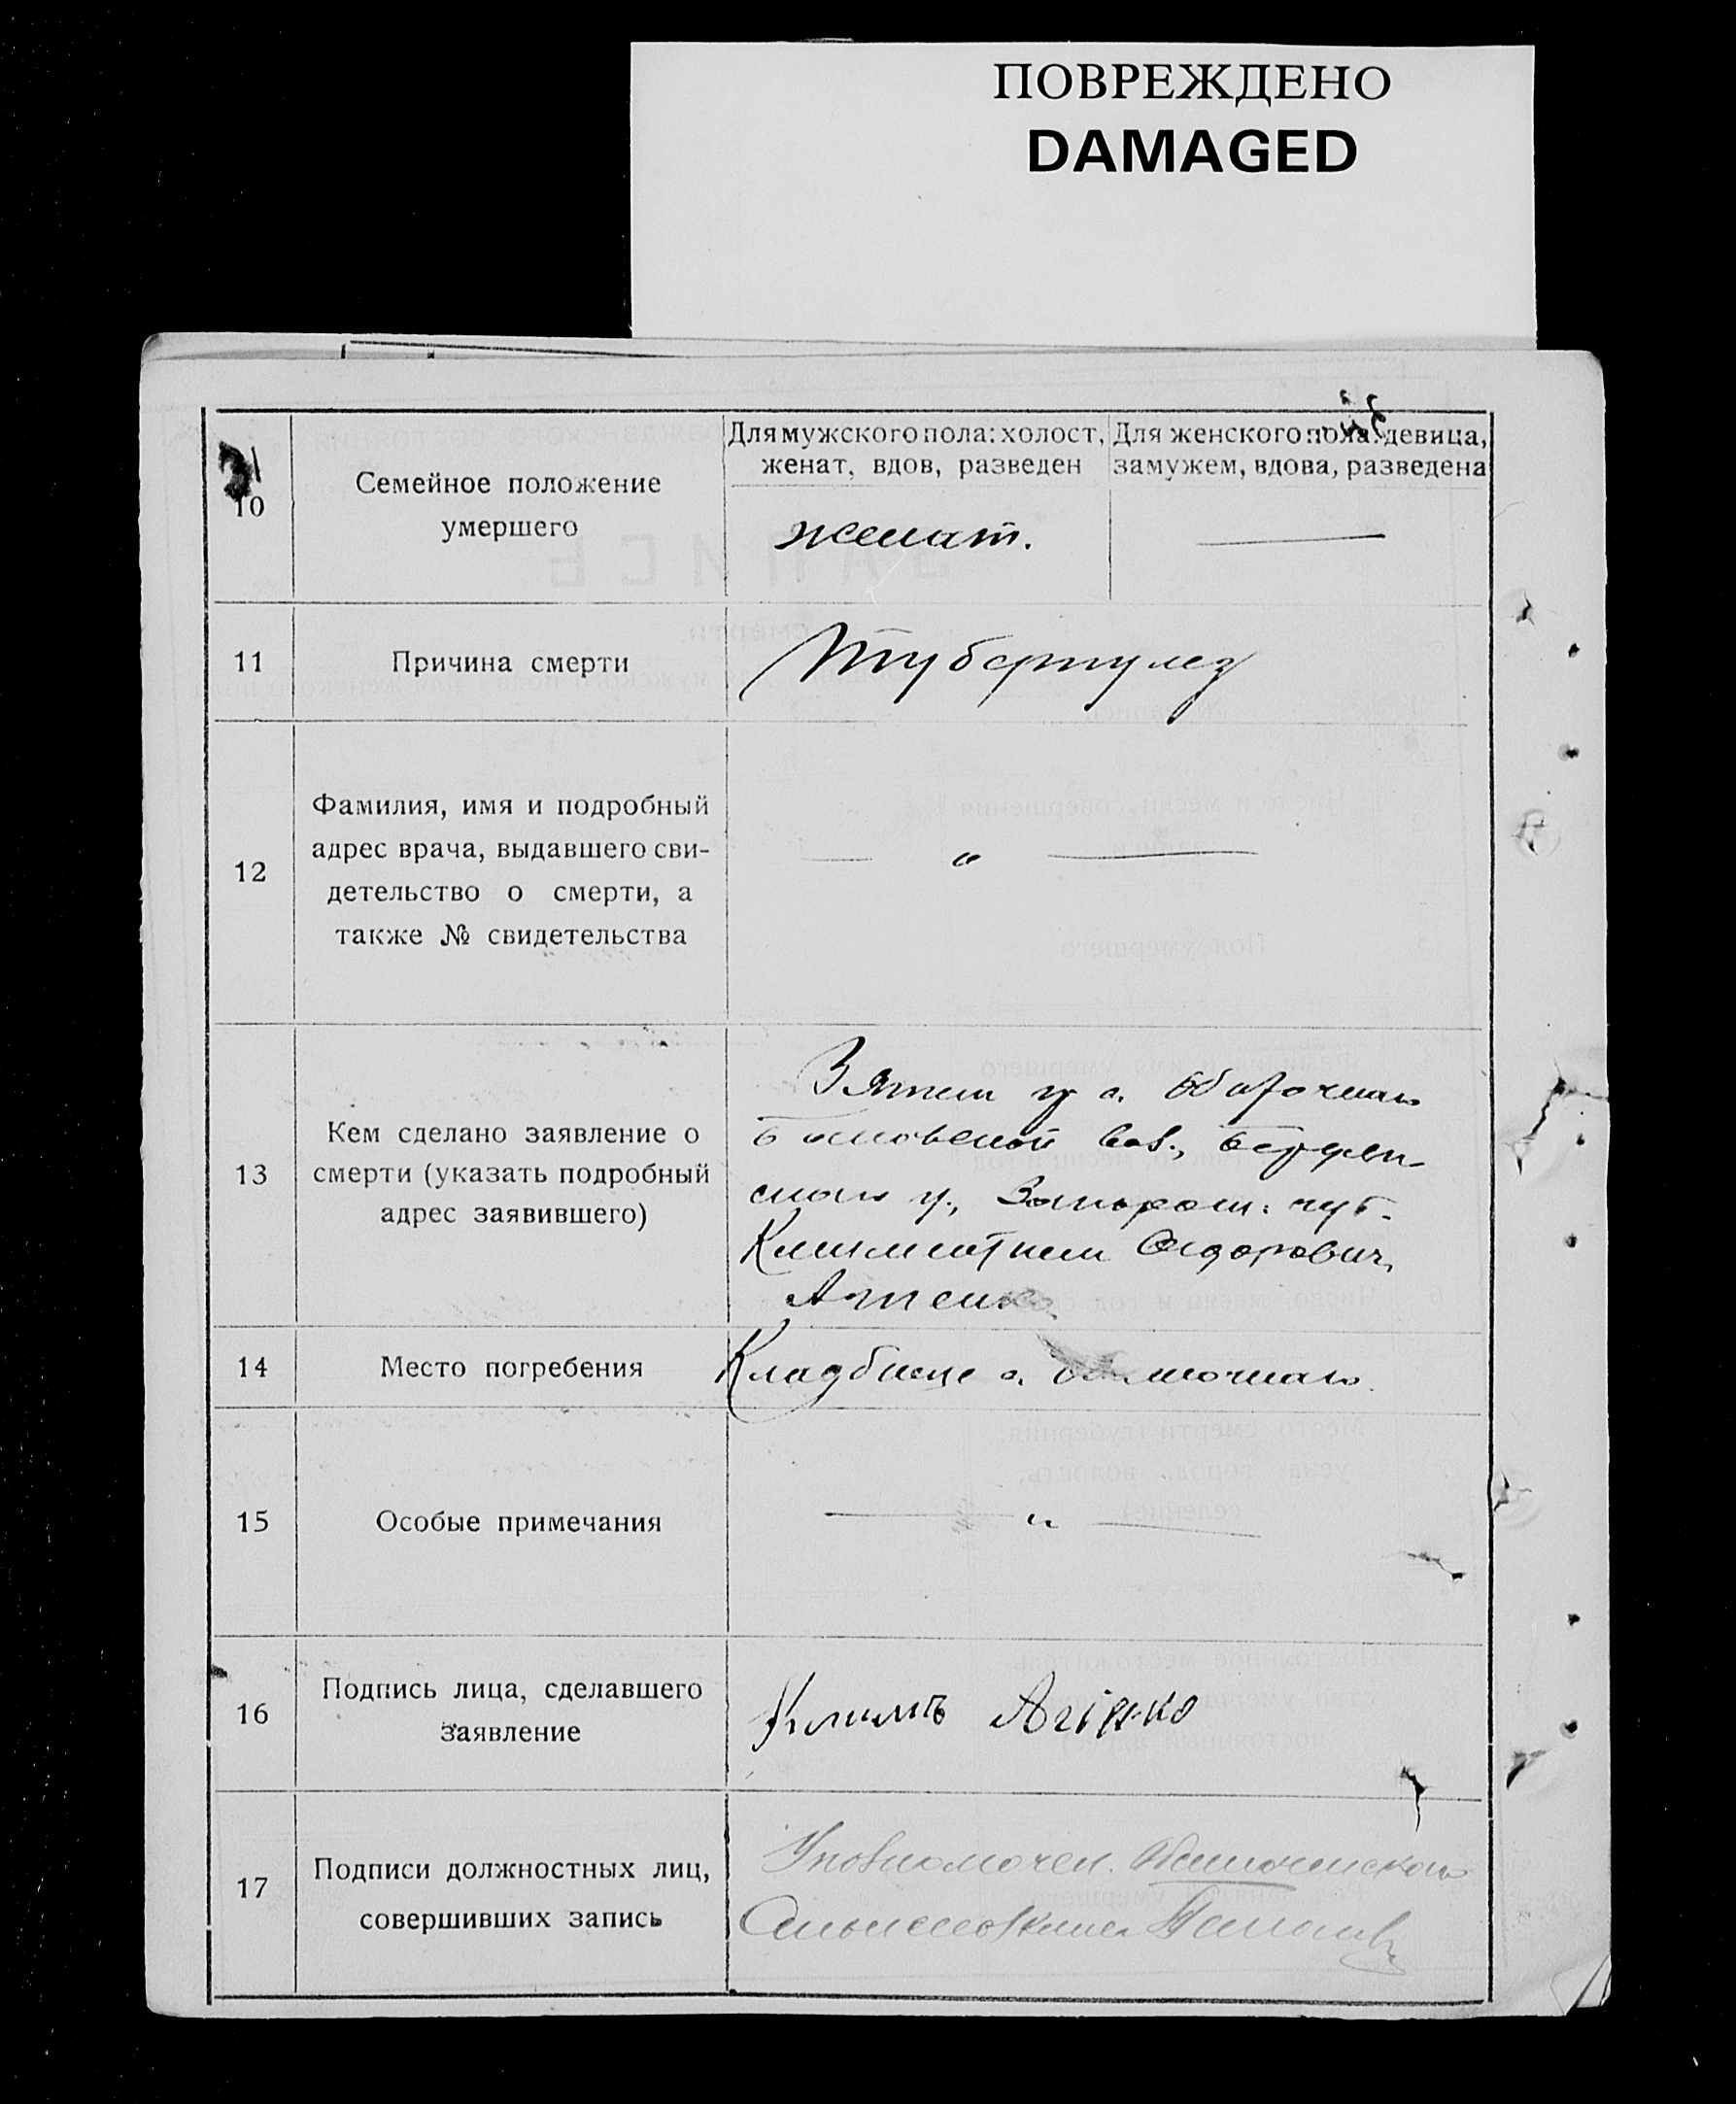 ПОВРЕЖДЕНО
DAMAGED
10
Семейное положение
умершего
Для мужского пола: холост,
женат, вдов, разведен
женат.
Для женского пола: девица,
замужем, вдова, разведена
11
Причина смерти
Туберкулез
12
Фамилия, имя и подробный
адрес врача, выдавшего сви-
детельство о смерти, а
также № свидетельства
"
13
Кем сделано заявление о
смерти (указать подробный
адрес заявившего)
Зятем гр. с.
вол., Бердян-
ского у., Запорож. губ.
Сидорович
14
Место погребения
Кладбище с.
15
Особые примечания
"
16
Подпись лица, сделавшего
заявление
Климъ
17
Подписи должностных лиц,
совершивших запись
Уполномочен.